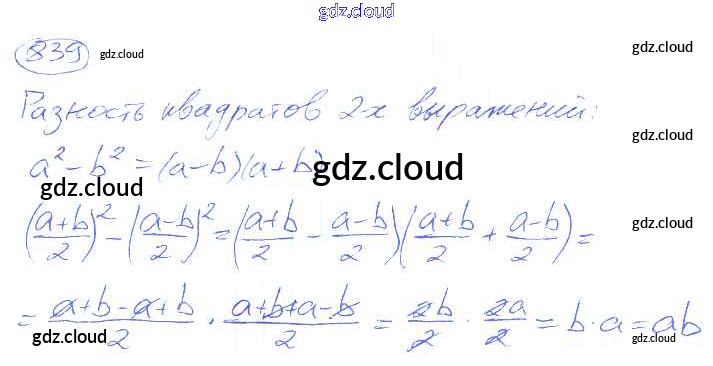 gdz.cloud
839 gdz.cloud gdz.cloud
Разность квадратов 2х выражений:
gdz.cloud
a² - b² = (a-b)(a+b) gdz.cloud
gdz.cloud
((a+b)/2)² - ((a-b)/2)² = ((a+b)/2 - (a-b)/2)((a+b)/2 + (a-b)/2) = gdz.cloud
= (a+b-a+b)/2 · (a+b+a-b)/2 = 2b/2 · 2a/2 = b·a = ab
gdz.cloud gdz.cloud gdz.cloud